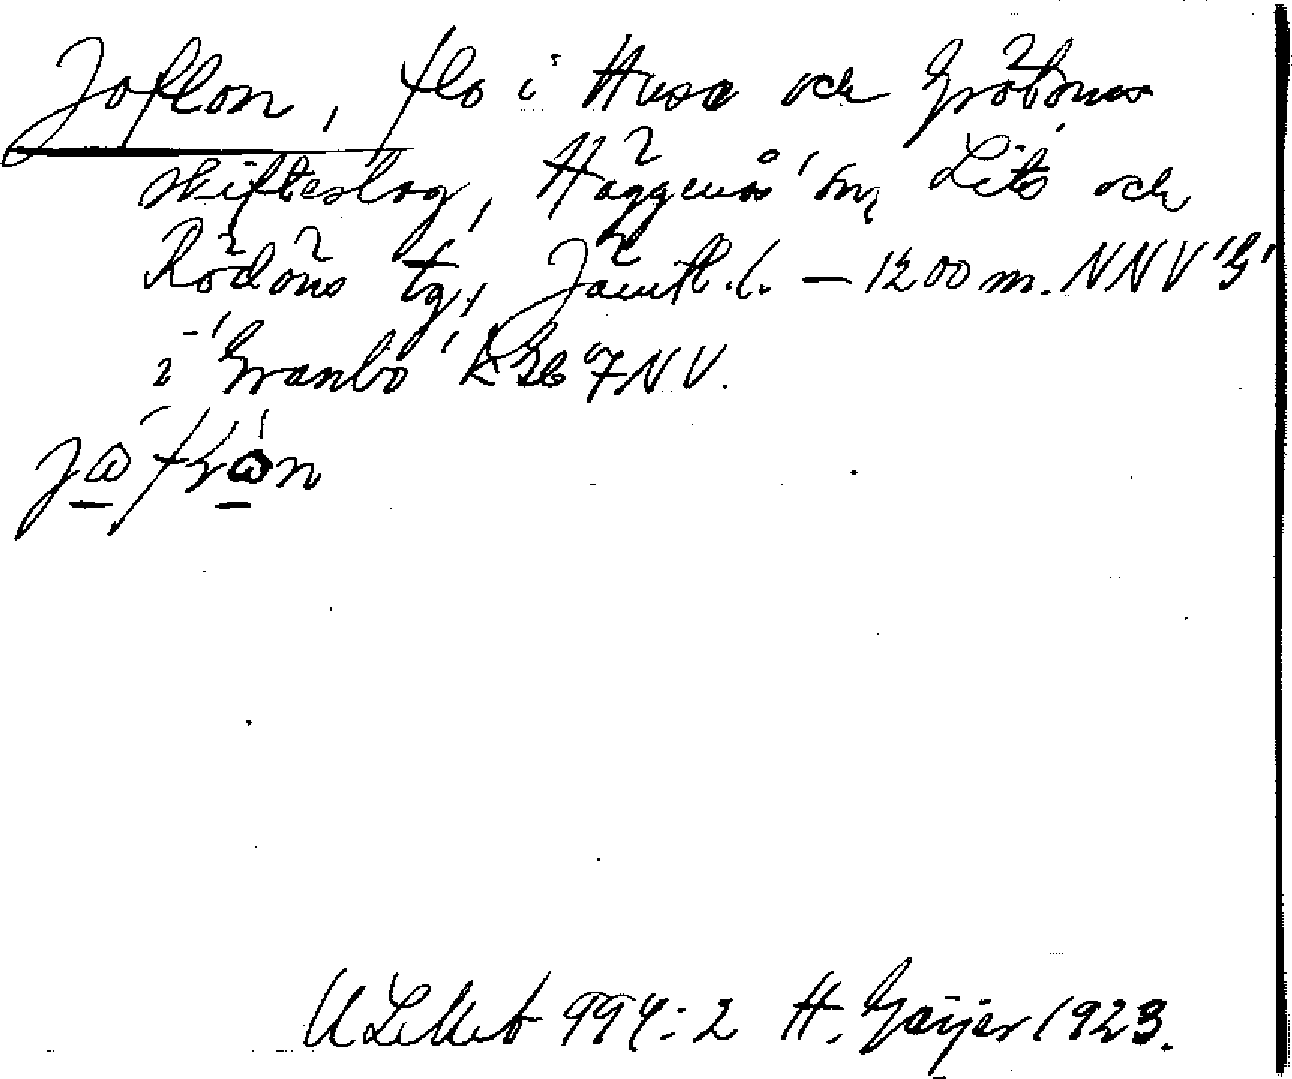 Joflon, flo i Husa och Gråbonäs
skifteslag, Häggenås sn, Lits och
Rödöns tg, Jämtl. l. – 1200 m. NNV 'G'
i 'Granbo' k Bl 7 NV.
ULMA 994:2 H. Geijer 1923.